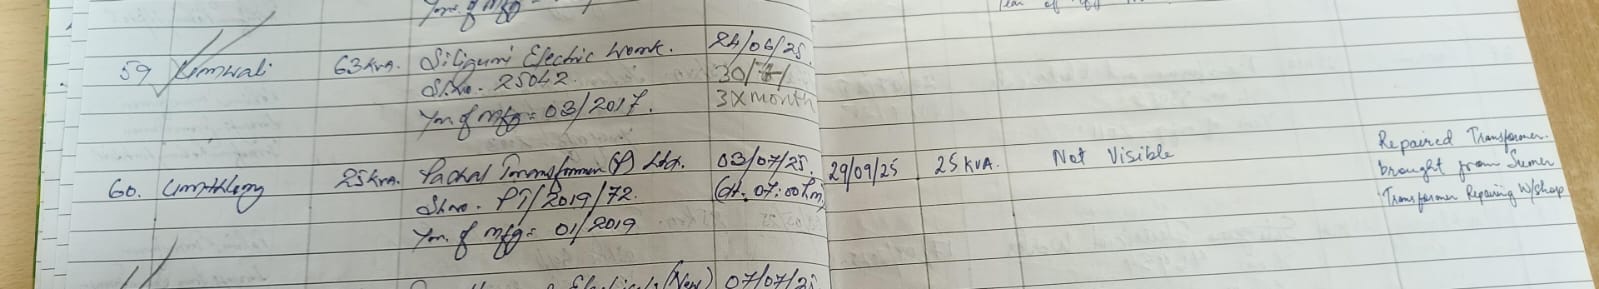 Yr. of mfg
Year of mfg
59 Umwali 63 KVA. Siliguri Electric Work. 24/06/25.
Sl.no. - 25042. 30/
Yr. of mfg = 03/2017. 3X month
60. Umthlong 25 KVA. Pachal Transformer (P) Ltd. 03/07/25. 29/09/25 25 KVA. Not Visible Repaired Transformer.
Sl.no. - PT/2019/72. (At. 07:00 hrs) brought from Sumer
Yr. of mfg = 01/2019 Transformer Repairing W/shop
(New) 07/07/25